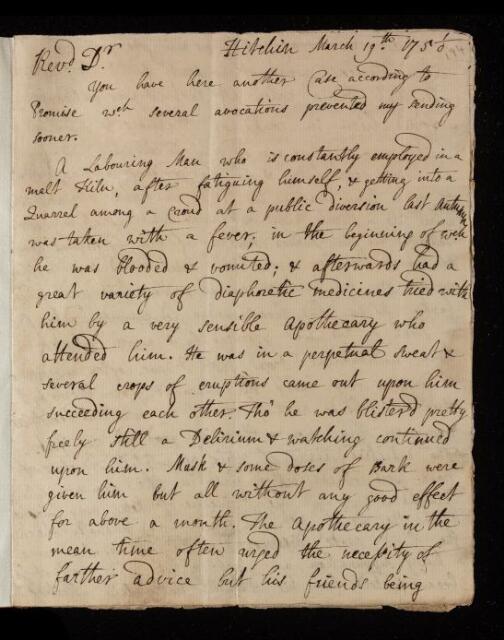 Revd. Dr Hitchin March 19th 1756
You have here another Case according to
Promise wch several avocations prevented my sending
sooner.
A Labouring Man who is constantly employed in a
malt Kiln, after fatiguing himself, & getting into a
Quarrel among a Croud at a public diversion last Autumn
was taken with a fever; in the beginning of wch
he was blooded & vomited; & afterwards had a
great variety of diaphoretic medicines tried with
him by a very sensible Apothecary who
attended him. He was in a perpetual sweat &
several crops of eruptions came out upon him
succeeding each other. Tho' he was blister'd pretty
freely still a Delirium & watching continued
upon him. Musk & some doses of Bark were
given him but all without any good effect
for above a month. The Apothecary in the
mean time often urged the necessity of
farther advice but his friends being